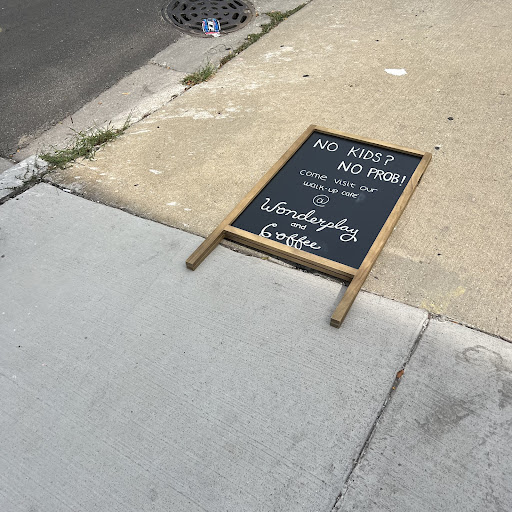 NO KIDS?
NO PROB!
come visit our
walk-up cafe
@
Wonderplay
and
Coffee